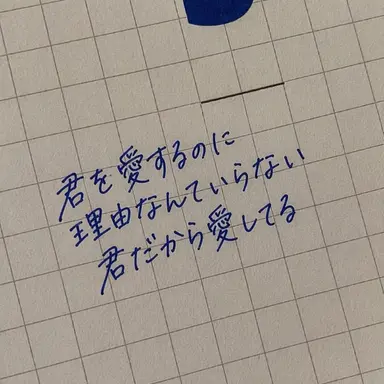 君を愛するのに
理由なんていらない
君だから愛してる